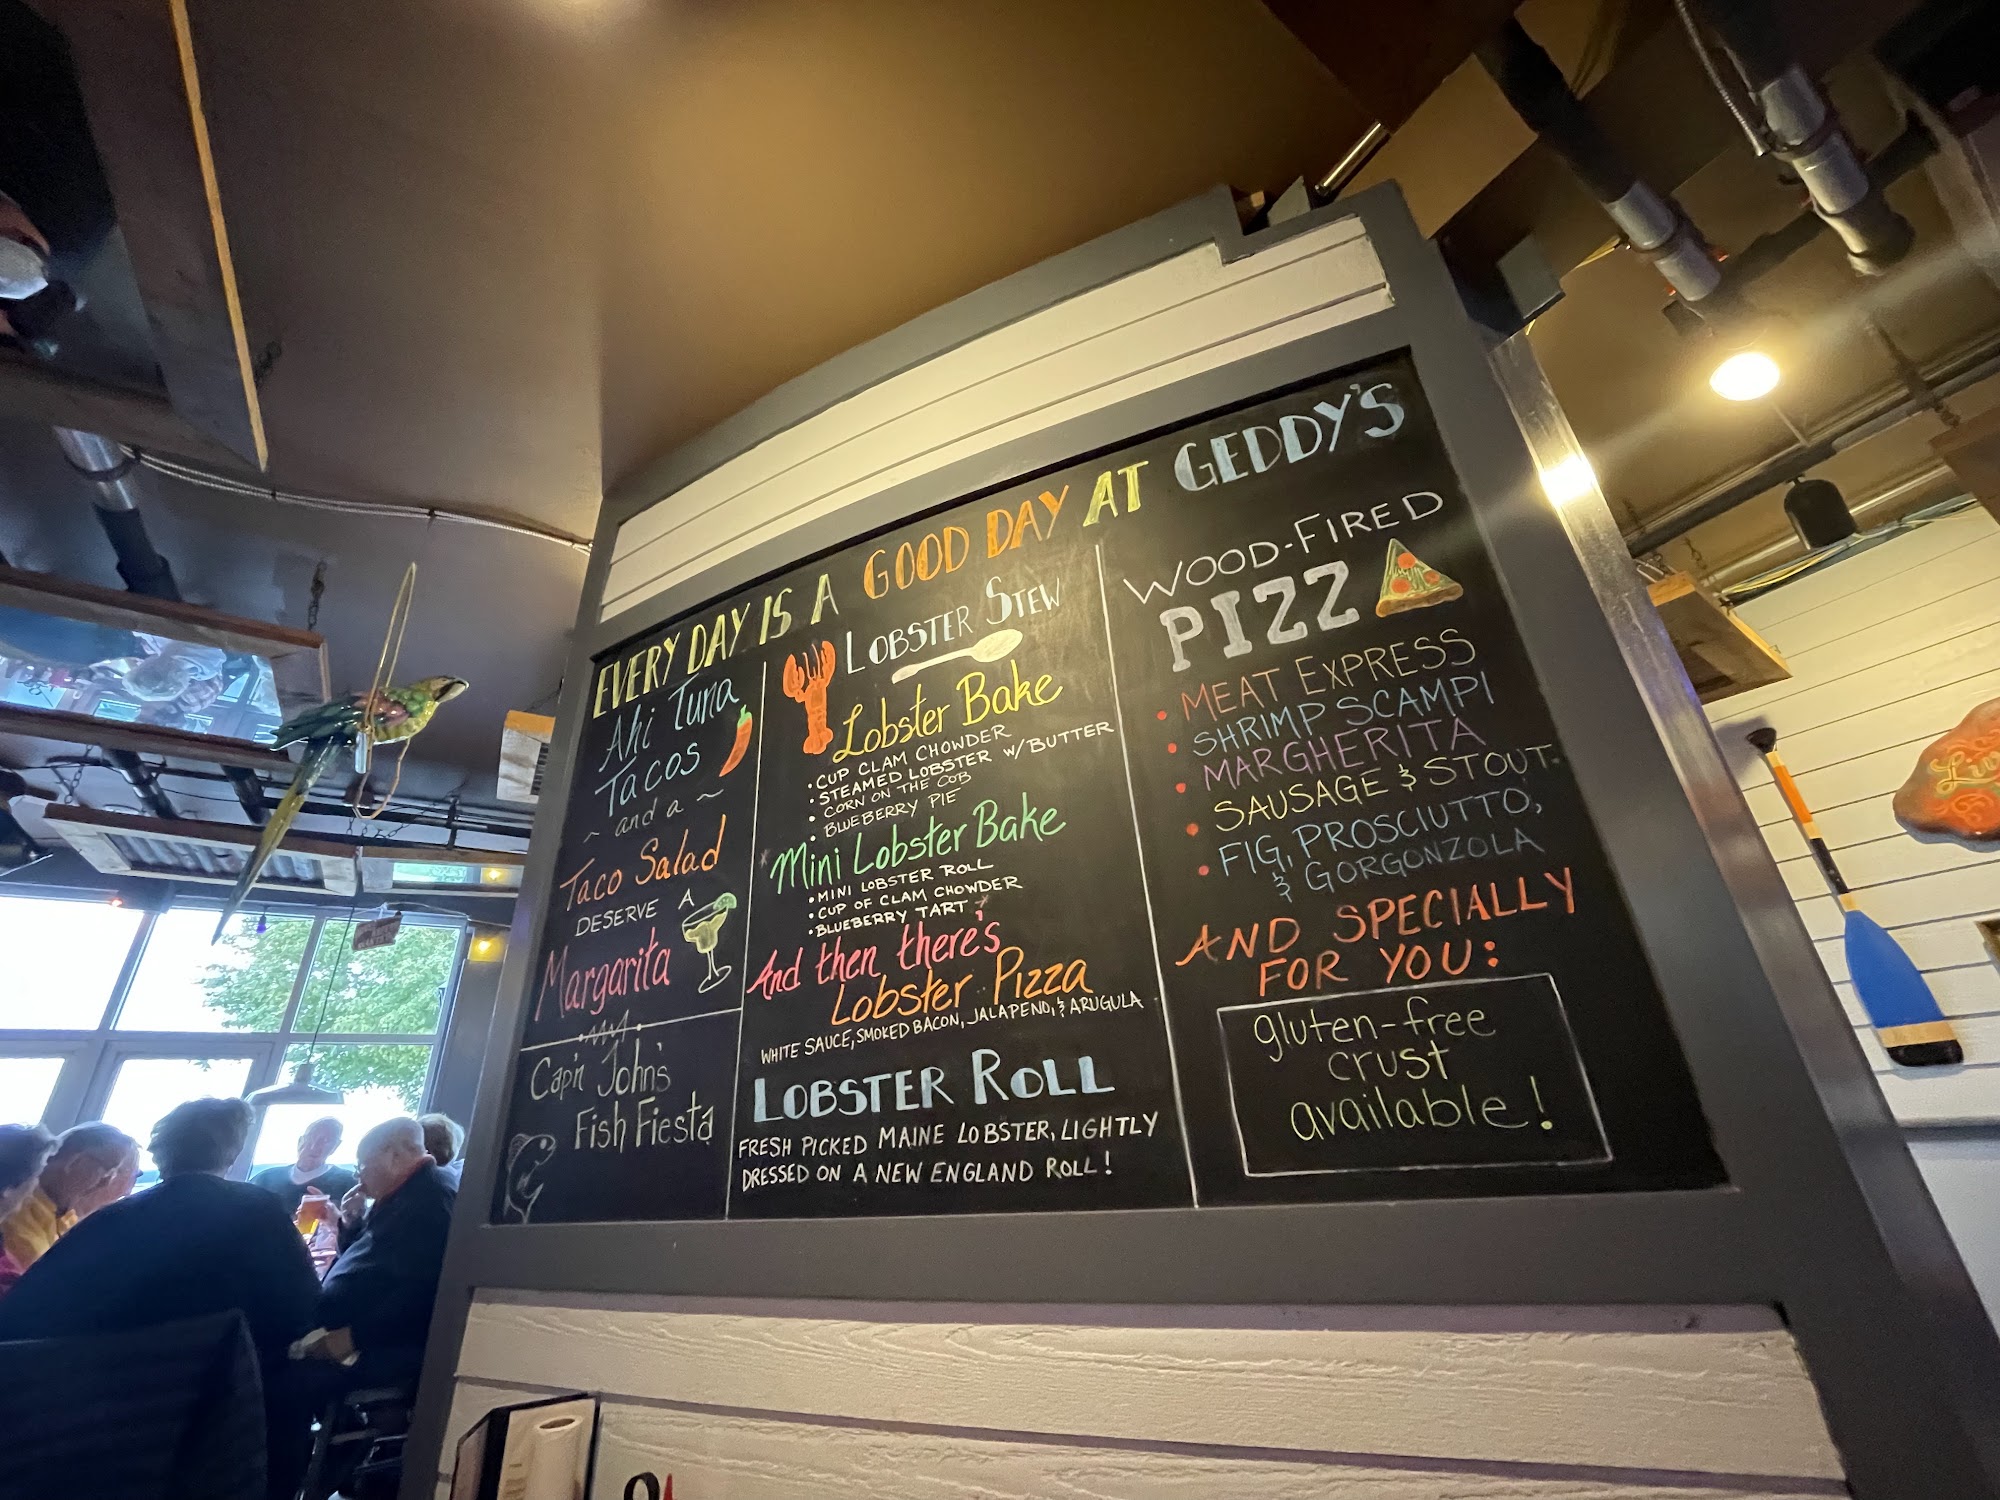 EVERY DAY IS A GOOD DAY AT GEDDY'S
Ahi Tuna
Tacos
~ and a ~
Taco Salad
DESERVE A
Margarita
Cap'n John's
Fish Fiesta
LOBSTER STEW
Lobster Bake
• CUP CLAM CHOWDER
• STEAMED LOBSTER W/BUTTER
• CORN ON THE COB
• BLUEBERRY PIE
*Mini Lobster Bake
• MINI LOBSTER ROLL
• CUP OF CLAM CHOWDER
• BLUEBERRY TART
And then there's
Lobster Pizza
WHITE SAUCE, SMOKED BACON, JALAPENO, & ARUGULA
LOBSTER ROLL
FRESH PICKED MAINE LOBSTER, LIGHTLY
DRESSED ON A NEW ENGLAND ROLL!
WOOD-FIRED
PIZZ
• MEAT EXPRESS
• SHRIMP SCAMPI
• MARGHERITA
• SAUSAGE & STOUT
• FIG, PROSCIUTTO,
& GORGONZOLA
AND SPECIALLY
FOR YOU:
gluten-free
crust
available!